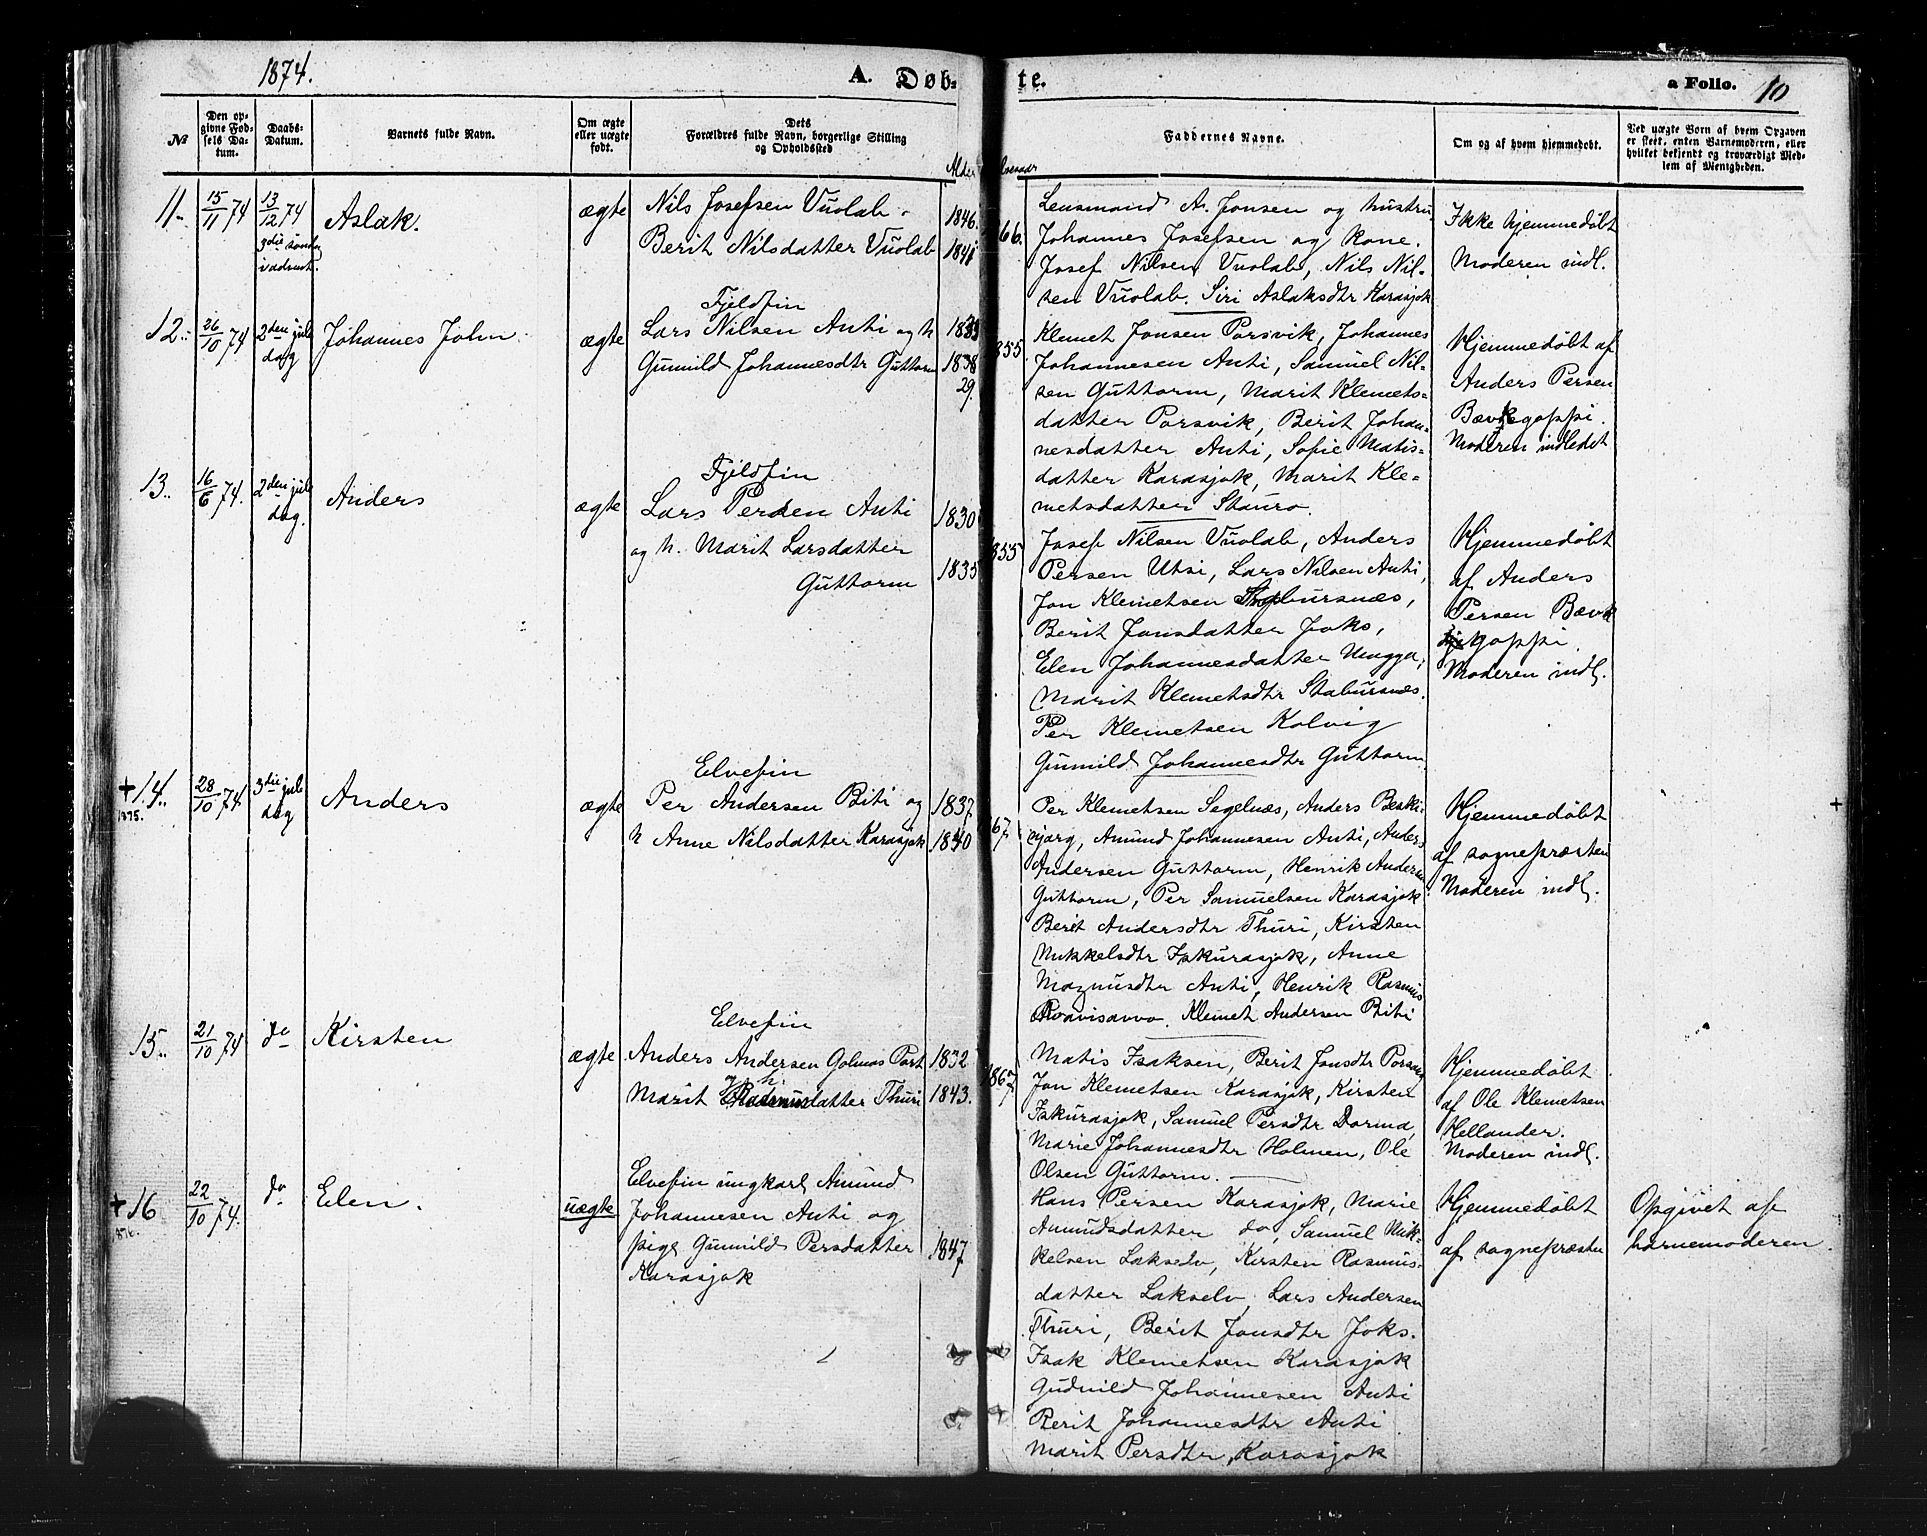 1874. A. Døb- te. a Folio. 10
No
Den op-
givne Fød-
sels Da-
tum.
Daabs-
Datum.
Barnets fulde Navn.
Om ægte
eller uægte
født.
Dets
Forældres fulde Navn, borgerlige Stilling
og Opholdssted
Alder
Faddernes Navne.
Om og af hvem hjemmedøbt.
Ved uægte Børn af hvem Opgaven
er skeet, enten Barnemoderen, eller
hvilket bekjendt og troværdigt Med-
lem af Menigheden.
11.
15/11 74
13/12 74
3die søndag
i advent.
Aslak.
ægte
Nils Josefsen Vuolab. 1846.
Berit Nilsdatter Vuolab 1841
66.
Lensmand A. Jonsen og hustru
Johannes Josefsen og kone.
Josef Nilsen Vuolab, Nils Nil-
sen Vuolab. Siri Aslaksdtr Karasjok
Ikke hjemmedøbt
Moderen indl.
12.
26/10 74
2den jule
dag
Johannes John
ægte
Fjeldfin
Lars Nilsen Anti og h 1833
Gunnild Johannesdtr Guttorm 1838
29.
855
Klemet Jonsen Porsvik, Johannes
Johannesen Anti, Samuel Nil-
sen Guttorm, Marit Klemets-
datter Porsvik, Berit Johan-
nesdatter Anti, Sofie Matis-
datter Karasjok, Marit Kle-
metsdatter Stauro.
Hjemmedøbt af
Anders Persen
Bævkegoppi.
Moderen indledet
13.
16/6 74.
2den jule
dag.
Anders
ægte
Fjeldfin
Lars Persen Anti 1830
og h. Marit Larsdatter
Guttorm 1835
855
Josef Nilsen Vuolab, Anders
Persen Utsi, Lars Nilsen Anti,
Jon Klemetsen Stabursnæs,
Berit Jonsdatter Joks,
Elen Johannesdatter Magga,
Marit Klemetsdtr Stabursnæs.
Per Klemetsen Kolvig
Gunnild Johannesdtr Guttorm
Hjemmedøbt
af Anders
Persen Bævk
goppi.
Moderen indl.
+ 14.
1875.
28/10 74
3die jule
dag
Anders
ægte
Elvefin
Per Andersen Biti og 1837.
h Anne Nilsdatter Karasjok 1840
67
Per Klemetsen Segelnæs, Anders Beski
njarg, Amund Johannesen Anti, Anders
Andersen Guttorm, Henrik Andersen
Guttorm, Per Samuelsen Karasjok
Berit Andersdtr Thuri, Kirsten
Mikkelsdtr Iskurasjok, Anne
Magnusdtr Anti, Henrik Rasmus
Roavisavvo. Klemet Andersen Biti
Hjemmedøbt
af sognepræsten
Moderen indl.
+
15.
21/10 74
do
Kirsten
ægte
Elvefin
Anders Andersen Golmas Part 1832
og h.
Marit Rasmusdatter Thuri 1843.
1867
Matis Isaksen, Berit Jonsdtr Porsang
Jon Klemetsen Karasjok, Kirsten
Iskurasjok, Samuel Persdtr Dorma,
Marie Johannesdtr Holmen, Ole
Olsen Guttorm.
Hjemmedøbt
af Ole Klemetsen
Hellander.
Moderen indl.
+ 16
22/10 74.
do
Elen.
uægte
Elvefin ungkarl Amund
Johannesen Anti og
pige Gunnild Persdatter 1847.
Karasjok
Hans Persen Karasjok, Marie
Amundsdatter do, Samuel Mik-
kelsen Lakselv, Kirsten Rasmus-
datter Lakselv, Lars Andersen
Thuri, Berit Jonsdtr Joks.
Isak Klemetsen Karasjok
Gudnild Johannesen Anti
Berit Johannesdtr Anti
Marit Persdtr, Karasjok
Hjemmedøbt
af sognepræsten
Opgivet af
barnemoderen.